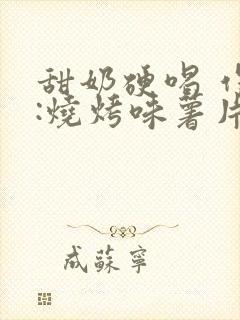 甜奶硬唱
:燒烤味薯片
成蘇寧